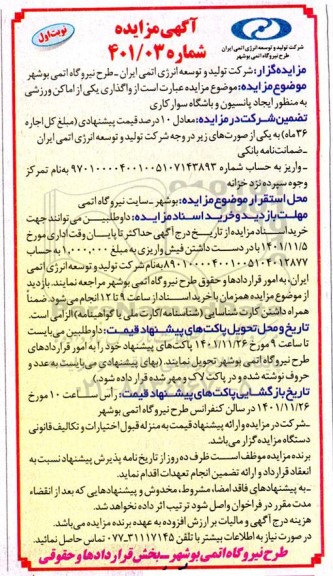 نوبت اول
آگهی مزایده
شماره ۴۰۱/۰۳
شرکت تولید و توسعه انرژی اتمی ایران
طرح نیروگاه اتمی بوشهر
مزایده‌گزار: شرکت تولید و توسعه انرژی اتمی ایران _ طرح نیروگاه اتمی بوشهر
موضوع مزایده: موضوع مزایده عبارت است از واگذاری یکی از اماکن ورزشی
به منظور ایجاد پانسیون و باشگاه سوارکاری
تضمین شرکت در مزایده: معادل ۱۰ درصد قیمت پیشنهادی (مبلغ کل اجاره
۳۶ ماه) به یکی از صورت‌های زیر در وجه شرکت تولید و توسعه انرژی اتمی ایران
_ ضمانت‌نامه بانکی
_ واریز به حساب شماره
به نام تمرکز
وجوه سپرده نزد خزانه
محل استقرار موضوع مزایده: بوشهر _ سایت نیروگاه اتمی
مهلت بازدید و خرید اسناد مزایده: داوطلبین می‌توانند جهت
خرید اسناد مزایده از تاریخ درج آگهی حداکثر تا پایان وقت اداری مورخ
۱۴۰۱/۱۱/۵ با در دست داشتن فیش واریزی به مبلغ ۱,۰۰۰,۰۰۰ به حساب
به نام شرکت تولید و توسعه انرژی اتمی
ایران، به امور قراردادها و حقوق طرح نیروگاه اتمی بوشهر مراجعه نمایند. بازدید
از موضوع مزایده همزمان با خرید اسناد از ساعت ۹ تا ۱۲ انجام می‌شود. ضمناً
همراه داشتن کارت شناسایی (شناسنامه/کارت ملی یا گواهینامه) الزامی است.
تاریخ و محل تحویل پاکت‌های پیشنهاد قیمت: داوطلبین می‌بایست
تا ساعت ۹ مورخ ۱۴۰۱/۱۱/۲۶ پاکت‌های پیشنهاد خود را به امور قراردادهای
طرح نیروگاه اتمی بوشهر تحویل نمایند. (بهای پیشنهادی می‌بایست به عدد و
حروف نوشته شده و در پاکت لاک و مهر شده قرار داده شود.)
تاریخ بازگشایی پاکت‌های پیشنهاد قیمت: راس ساعت ۱۰ مورخ
۱۴۰۱/۱۱/۲۶ در سالن کنفرانس طرح نیروگاه اتمی بوشهر
_ شرکت در مزایده و ارائه پیشنهاد قیمت به منزله قبول اختیارات و تکالیف قانونی
دستگاه مزایده گزار می‌باشد.
برنده مزایده موظف است ظرف ده روز از تاریخ نامه پذیرش پیشنهاد نسبت به
انعقاد قرارداد و ارائه تضمین انجام تعهدات اقدام نماید.
_ به پیشنهادهای فاقد امضا، مشروط، مخدوش و پیشنهادهایی که بعد از انقضاء
مدت مقرر در فراخوان واصل شود ترتیب اثر داده نخواهد شد.
هزینه درج آگهی و مالیات بر ارزش افزوده به عهده برنده مزایده می‌باشد.
در صورت نیاز به اطلاعات بیشتر با تلفن ۳۱۱۱۷۱۴۵-۰۷۷ تماس حاصل نمائید.
طرح نیروگاه اتمی بوشهر _ بخش قراردادها و حقوقی